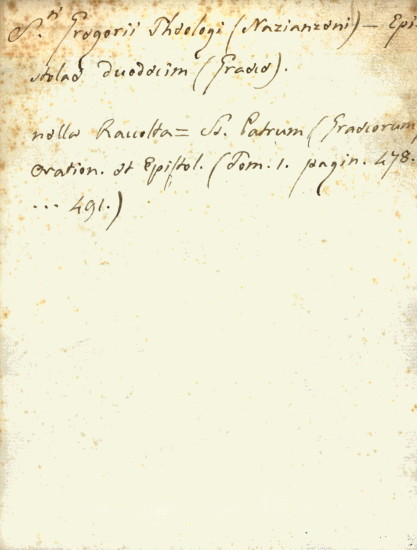 S.ti Gregorii Theologi (Nazianzeni) — Epi-
stolae duodecim (Graece).
nella Raccolta = Ss. Patrum (Graecorum
oration. et Epistol. (Tom. 1. pagin. 478.
... 491.)